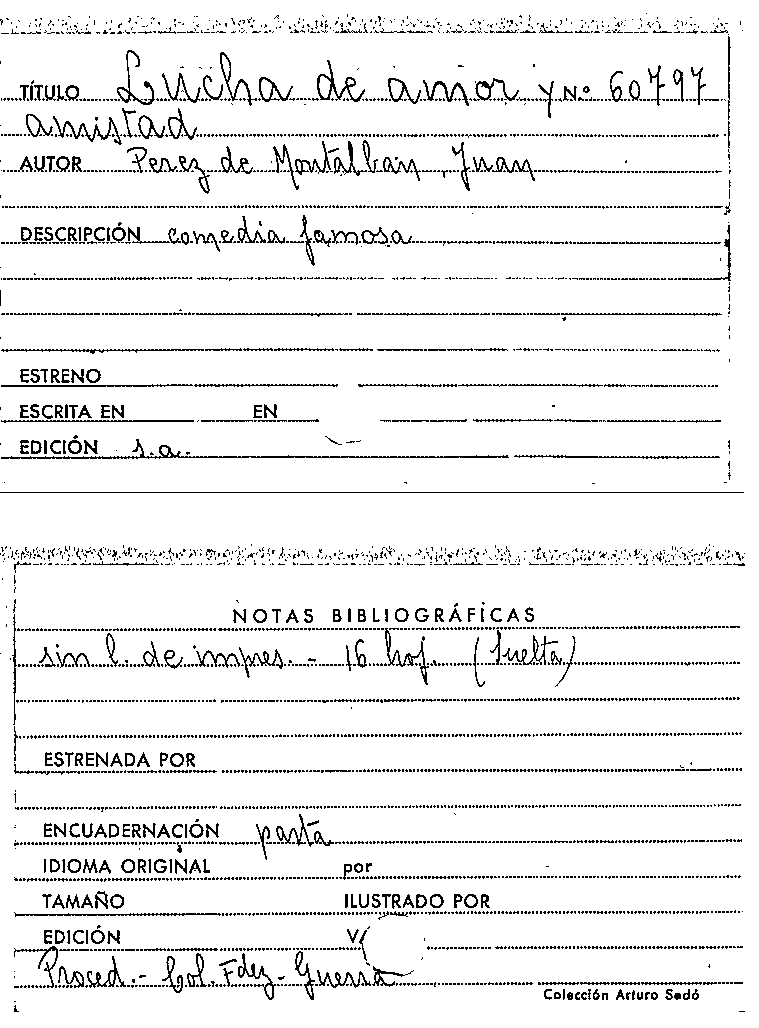 TÍTULO Lucha de amor y N.º 60797
amistad
AUTOR Perez de Montalban, Juan
DESCRIPCIÓN comedia famosa
ESTRENO
ESCRITA EN EN
EDICIÓN s.a.
NOTAS BIBLIOGRÁFICAS
sin l. de impres. - 16 hoj. (Suelta)
ESTRENADA POR
ENCUADERNACIÓN pasta
IDIOMA ORIGINAL por
TAMAÑO ILUSTRADO POR
EDICIÓN V/
Proced.- Col. Fdez-Guerra
Colección Arturo Sedó